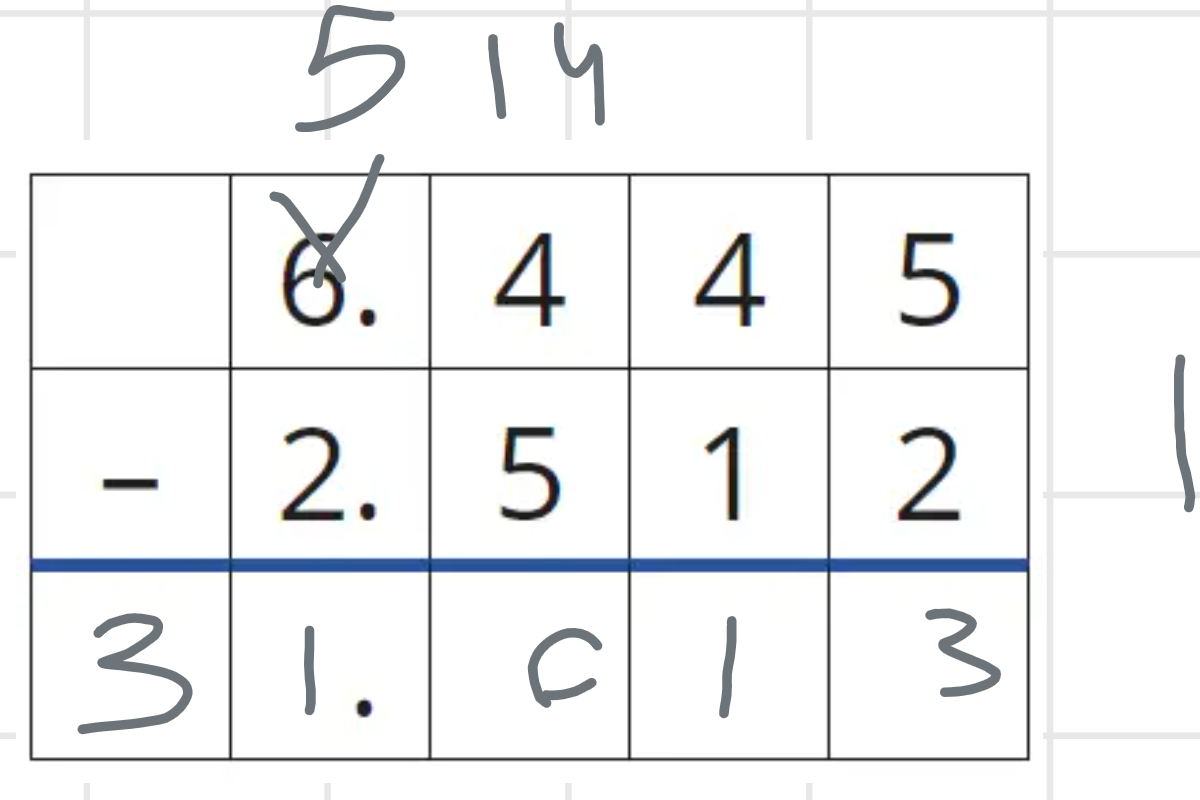 5 14
6. 4 4 5
- 2. 5 1 2
3 1. C 1 3
1